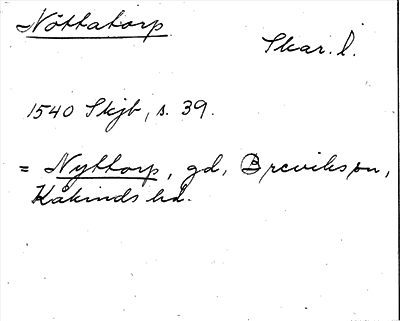 Nöttatorp
Skar. l.
1540 Skjb, s. 39.
= Nyttorp, gd, Breviks sn,
Kåkinds hd.